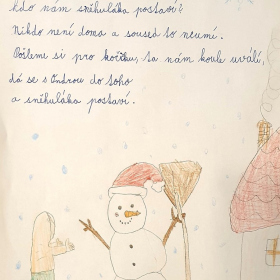 Kdo nám sněhuláka postaví?
Nikdo není doma a soused to neumí.
Pošleme si pro kočičku, ta nám koule uválí,
dá se s Ondrou do toho
a sněhuláka postaví.